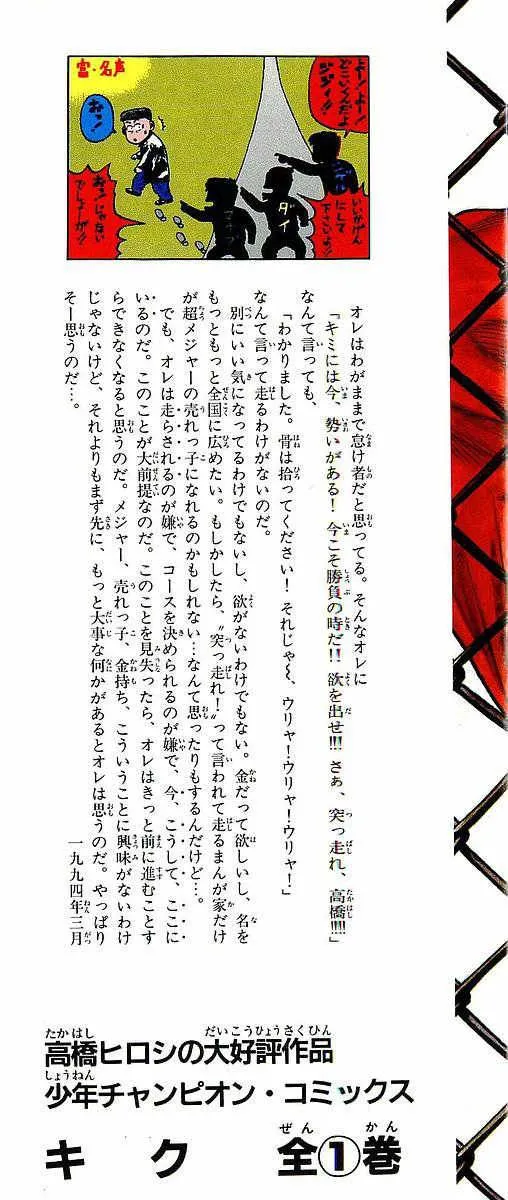 富・名声
よー!よー!
どこいくんだよ
ジジイ!!
おっ!
いいかげん
にして
下さいよ!!
おっじゃない
でしょーが!!
ダイ
オレはわがままで怠け者だと思ってる。そんなオレに
「キミには今、勢いがある!今こそ勝負の時だ!!欲を出せ!!!さぁ、突っ走れ、高橋!!!!」
なんて言っても、
「わかりました。骨は拾ってください!それじゃ〜、ウリャ!ウリャ!ウリャ!」
なんて言って走るわけがないのだ。
別にいい気になってるわけでもないし、欲がないわけでもない。金だって欲しいし、名を
もっともっと全国に広めたい。もしかしたら、〝突っ走れ!〟って言われて走るまんが家だけ
が超メジャーの売れっ子になれるのかもしれない…なんて思ったりもするんだけど…。
でも、オレは走らされるのが嫌で、コースを決められるのが嫌で、今、こうして、ここに
いるのだ。このことが大前提なのだ。このことを見失ったら、オレはきっと前に進むことす
らできなくなると思うのだ。メジャー、売れっ子、金持ち、こういうことに興味がないわけ
じゃないけど、それよりもまず先に、もっと大事な何かがあるとオレは思うのだ。やっぱり
そー思うのだ…。
一九九四年三月
高橋ヒロシの大好評作品
少年チャンピオン・コミックス
キク 全①巻